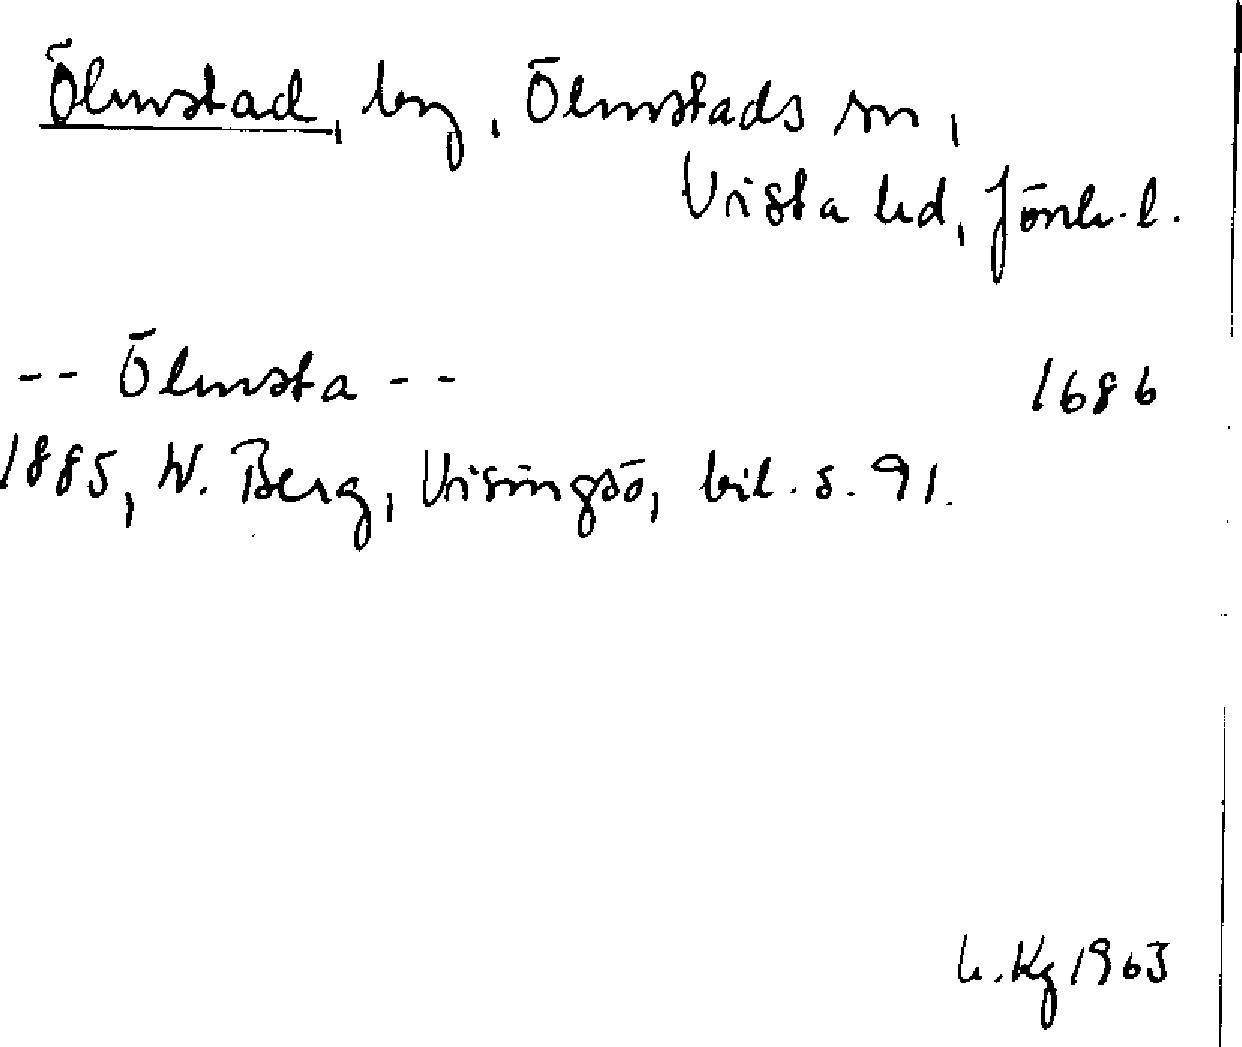 Ölmstad, by, Ölmstads sn,
Vista hd, Jönk. l.
-- Ölmsta -- 1686
1885, W. Berg, Visingsö, bil. s. 91.
h. Kg 1963